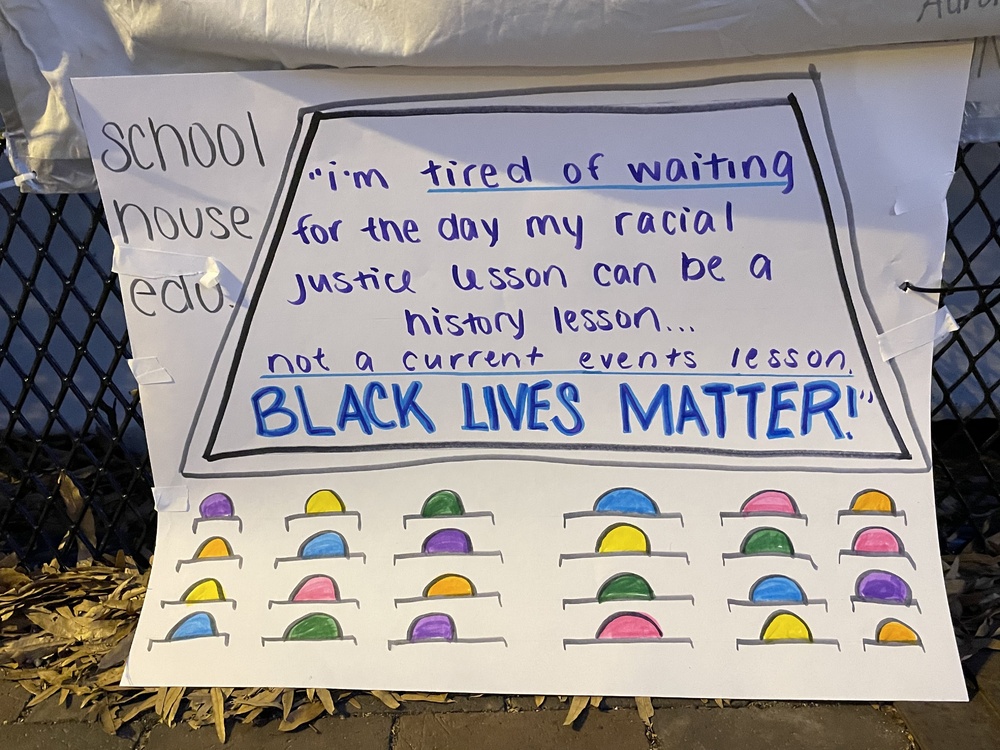 school
house
edu.
"i'm tired of waiting
for the day my racial
justice lesson can be a
history lesson...
not a current events lesson.
BLACK LIVES MATTER!"